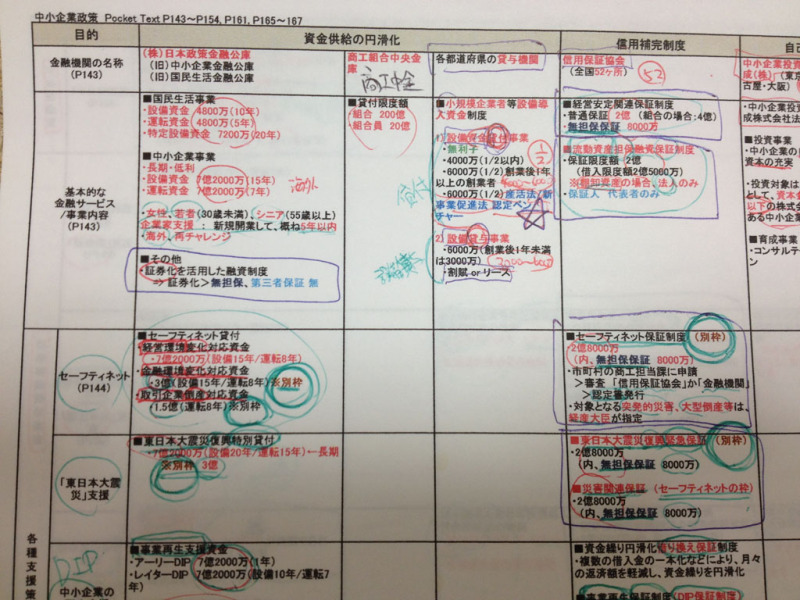 中小企業政策 Pocket Text P143～P154，P161，P165～167
目的
資金供給の円滑化
信用補完制度
自己
金融機関の名称
(P143)
(株)日本政策金融公庫
(旧)中小企業金融公庫
(旧)国民生活金融公庫
商工組合中央金
庫
商工中金
各都道府県の貸与機関
信用保証協会
(全国52ヶ所)
52
中小企業投資
成(株)（東京
古屋・大阪）
基本的な
金融サービス
/事業内容
(P143)
■国民生活事業
・設備資金 4800万(10年)
・運転資金 4800万(5年)
・特定設備資金 7200万(20年)
■中小企業事業
・長期・低利
・設備資金 7億2000万(15年)
・運転資金 7億2000万(7年)
・女性、若者(30歳未満)、シニア(55歳以上)
企業家支援： 新規開業して、概ね5年以内
・海外、再チャレンジ
■その他
・証券化を活用した融資制度
⇒ 証券化＞無担保、第三者保証 無
■貸付限度額
組合 200億
組合員 20億
■小規模企業者等設備導
入資金制度
1) 設備資金貸付事業
・無利子
・4000万(1/2以内)
・6000万(1/2)創業後1年
以上の創業者
・6000万(1/2)産活法/新
事業促進法 認定ベン
チャー
1/2
貸付
2) 設備貸与事業
・6000万(創業後1年未満
は3000万)
・割賦 or リース
■経営安定関連保証制度
・普通保証 2億 (組合の場合：4億)
・無担保保証 8000万
■流動資産担保融資保証制度
・保証限度額 2億
(借入限度額2億5000万)
※棚卸資産の場合、法人のみ
・保証人 代表者のみ
中小企業投
成株式会社法
■投資事業
・中小企業の
資本の充実
・投資対象は
として、資本金
以下の株式会
ある中小企業
■育成事業
・コンサルテ
ン
セーフティネット
(P144)
■セーフティネット貸付
・経営環境変化対応資金
・7億2000万(設備15年/運転8年)
・金融環境変化対応資金
・3億(設備15年/運転8年)※別枠
・取引企業倒産対応資金
・1.5億(運転8年)※別枠
■セーフティネット保証制度 （別枠）
・2億8000万
(内、無担保保証 8000万)
・市町村の商工担当課に申請
＞審査 「信用保証協会」か「金融機関」
＞認定書発行
・対象となる突発的災害、大型倒産等は、
経産大臣が指定
「東日本大震
災」支援
■東日本大震災復興特別貸付
・7億2000万(設備20年/運転15年)←長期
※別枠 3億
■東日本大震災復興緊急保証 （別枠）
・2億8000万
(内、無担保保証 8000万)
■災害関連保証 （セーフティネットの枠）
・2億8000万
(内、無担保保証 8000万)
各
種
支
援
策
DIP
中小企業の
■事業再生支援資金
・アーリーDIP 7億2000万(1年)
・レイターDIP 7億2000万(設備10年/運転7
年)
■資金繰り円滑化借り換え保証制度
・複数の借入金の一本化などにより、月々
の返済額を軽減し、資金繰りを円滑化
■事業再生保証制度(DIP保証制度)